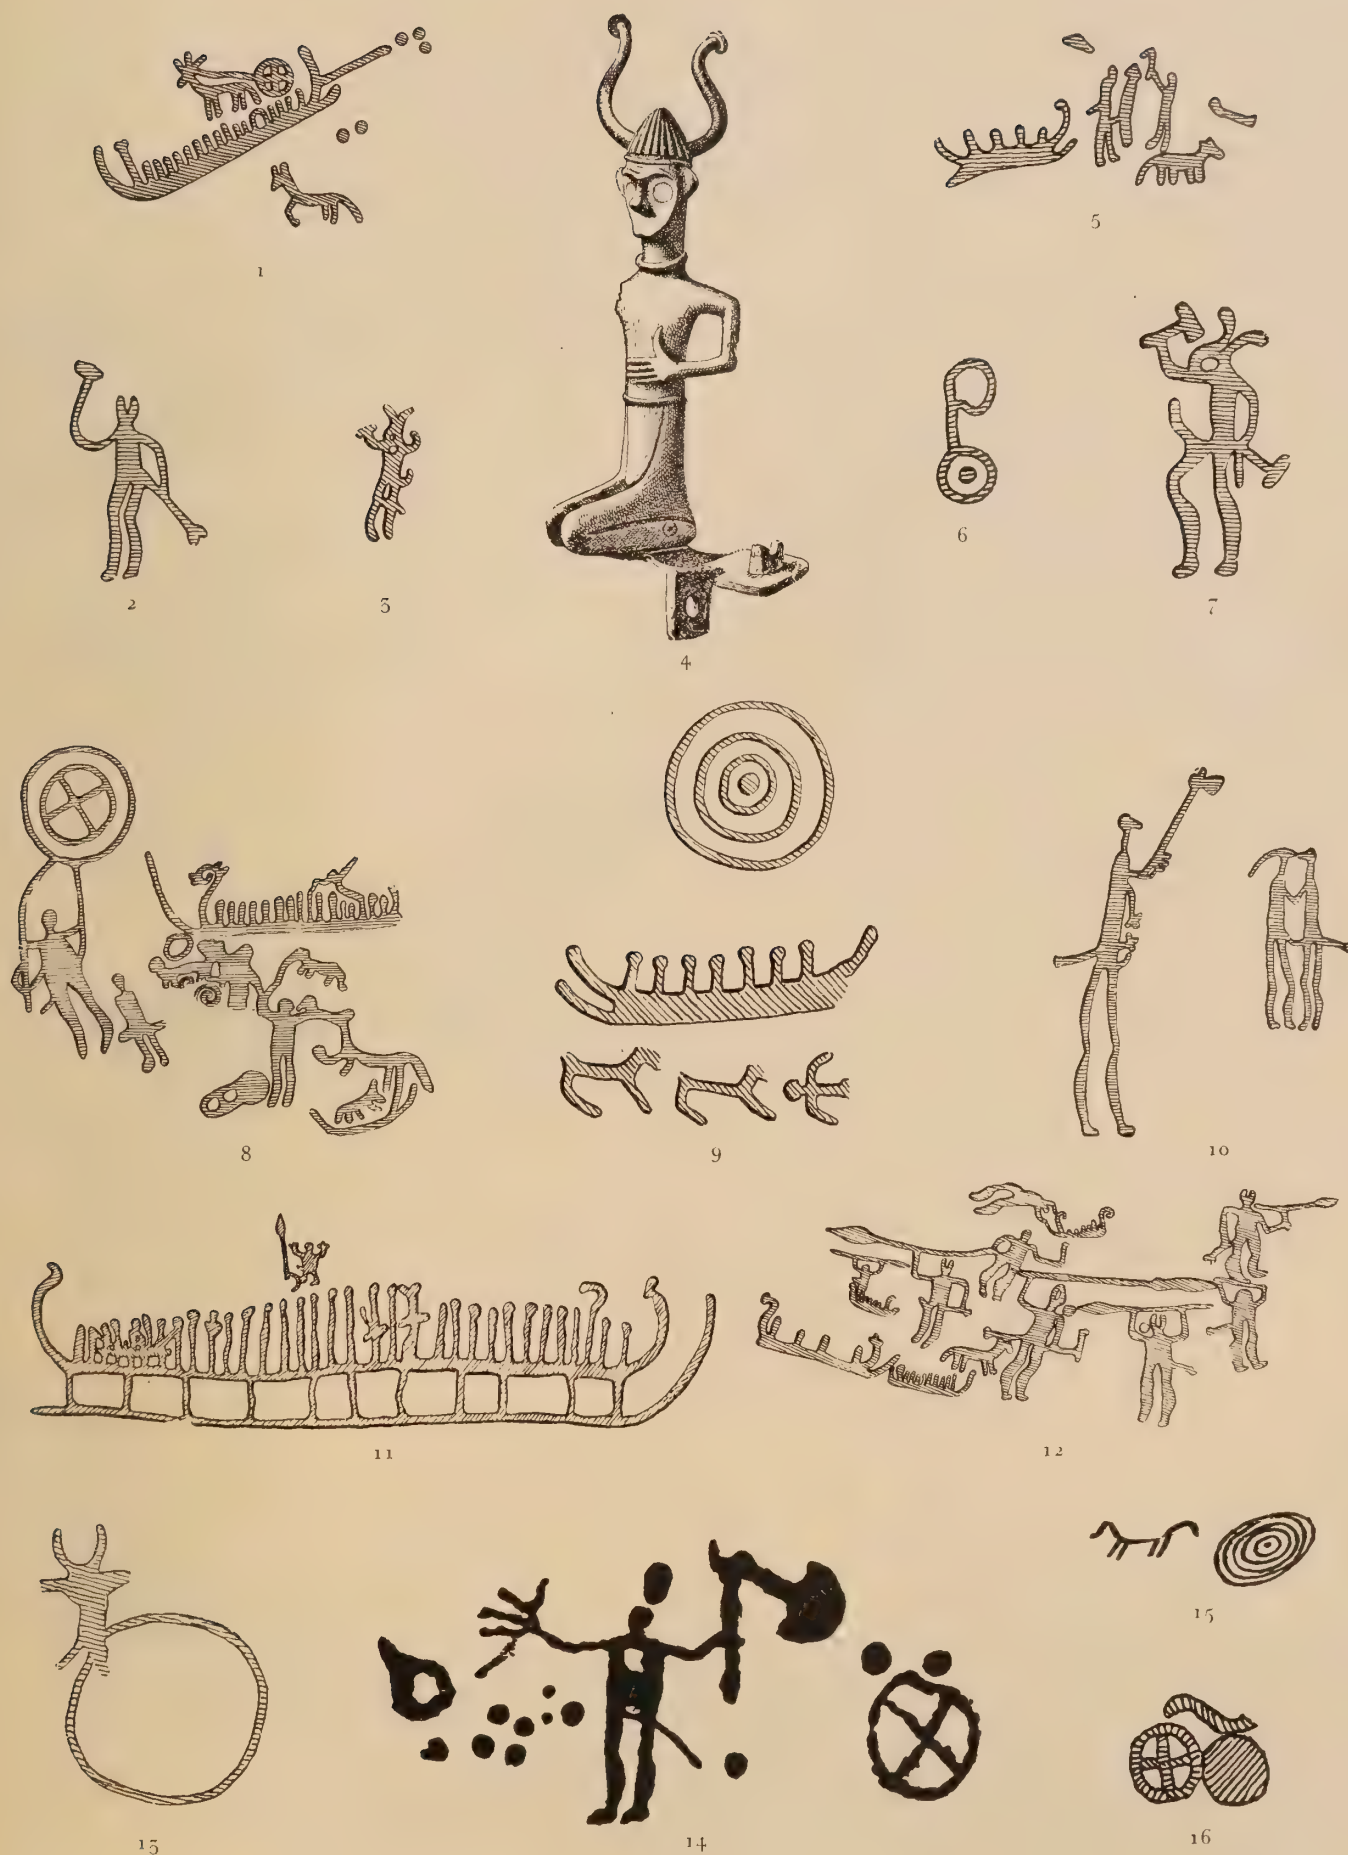 1
5
2
3
4
6
7
8
9
10
11
12
15
13
14
16